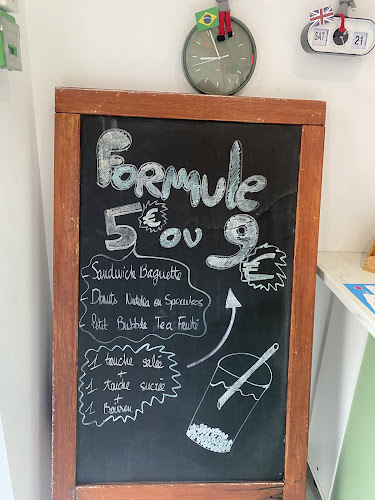 SAT 21
Formule
5€ ou 9€
Sandwich Baguette
Donuts Nutella ou Speculoos
Petit Bubble Tea Fruité
1 touche salée
+
1 touche sucrée
+
1 Boisson